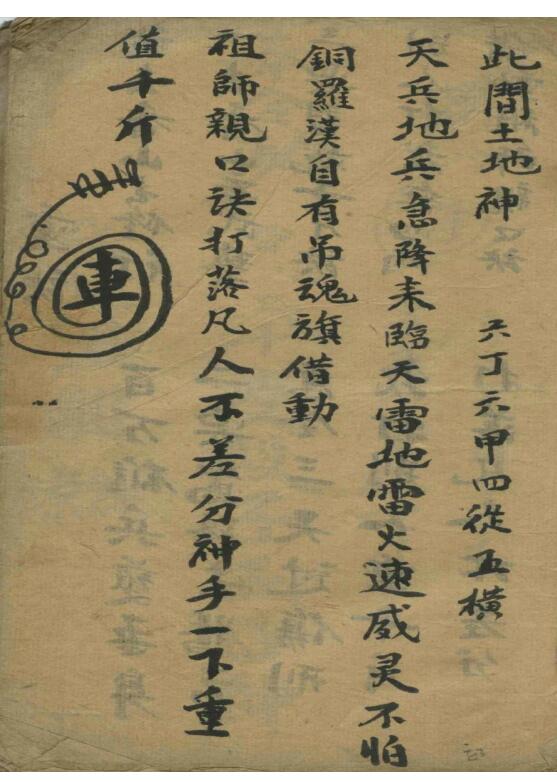 此間土地神 六丁六甲四從五橫
天兵地兵急降来臨天雷地雷火速威灵不怕
銅羅漢自有吊魂旗借動
祖師親口訣打落凡人不差分神手一下重
值千斤
車